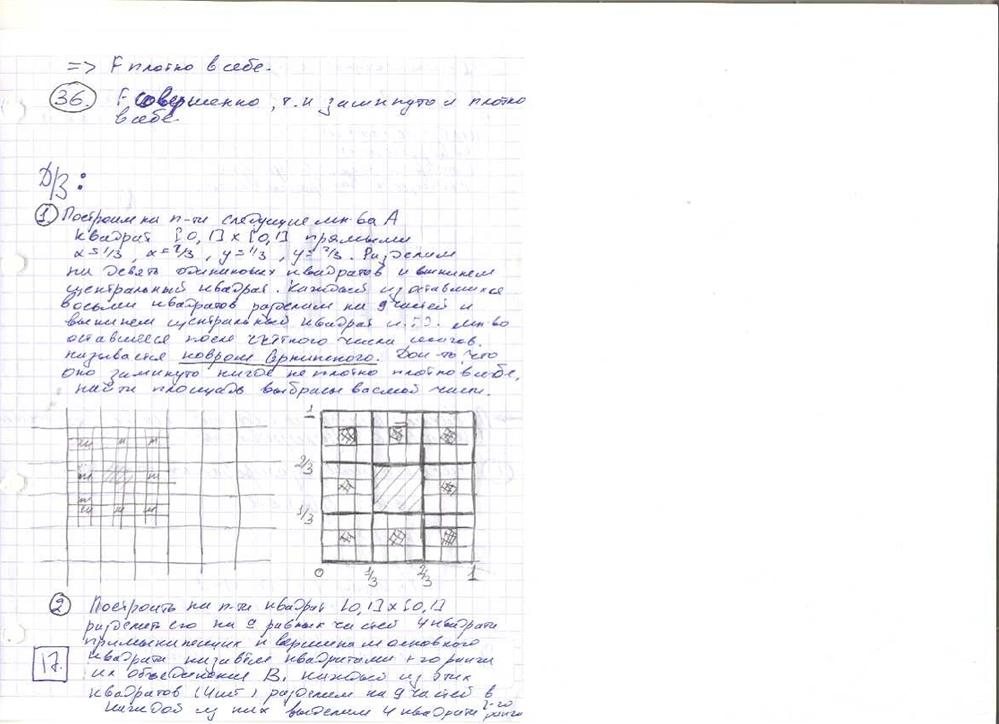 => F плотно в себе.
36. F совершенно, т.к замкнуто и плотно
в себе.
Д/З:
1 Построим на п-ти следующие мн-ва A
квадрат [0,1] x [0,1] прямыми
x=1/3, x=2/3, y=1/3, y=2/3. Разделим
на девять одинаковых квадратов и выкинем
центральный квадрат. Каждый из оставшихся
восьми квадратов разделим на 9 частей и
выкинем центральный квадрат и.т.д. мн-во
оставшееся после счётного числа шагов.
называется ковром Серпинского. Док-ть, что
оно замкнуто нигде не плотно плотно в себе,
найти площадь выбрасываемой части.
1
2/3
1/3
0 1/3 2/3 1
2 Построить на п-ти квадрат [0,1] x [0,1]
разделить его на 9 равных частей 4 квадрата
примыкающих к вершинам основного
квадрата назовём квадратами 1-го ранга
их объединение B₁ каждый из этих
17.
квадратов (4шт) разделим на 9 частей в
каждой из них выделим 4 квадрата 2-го ранга